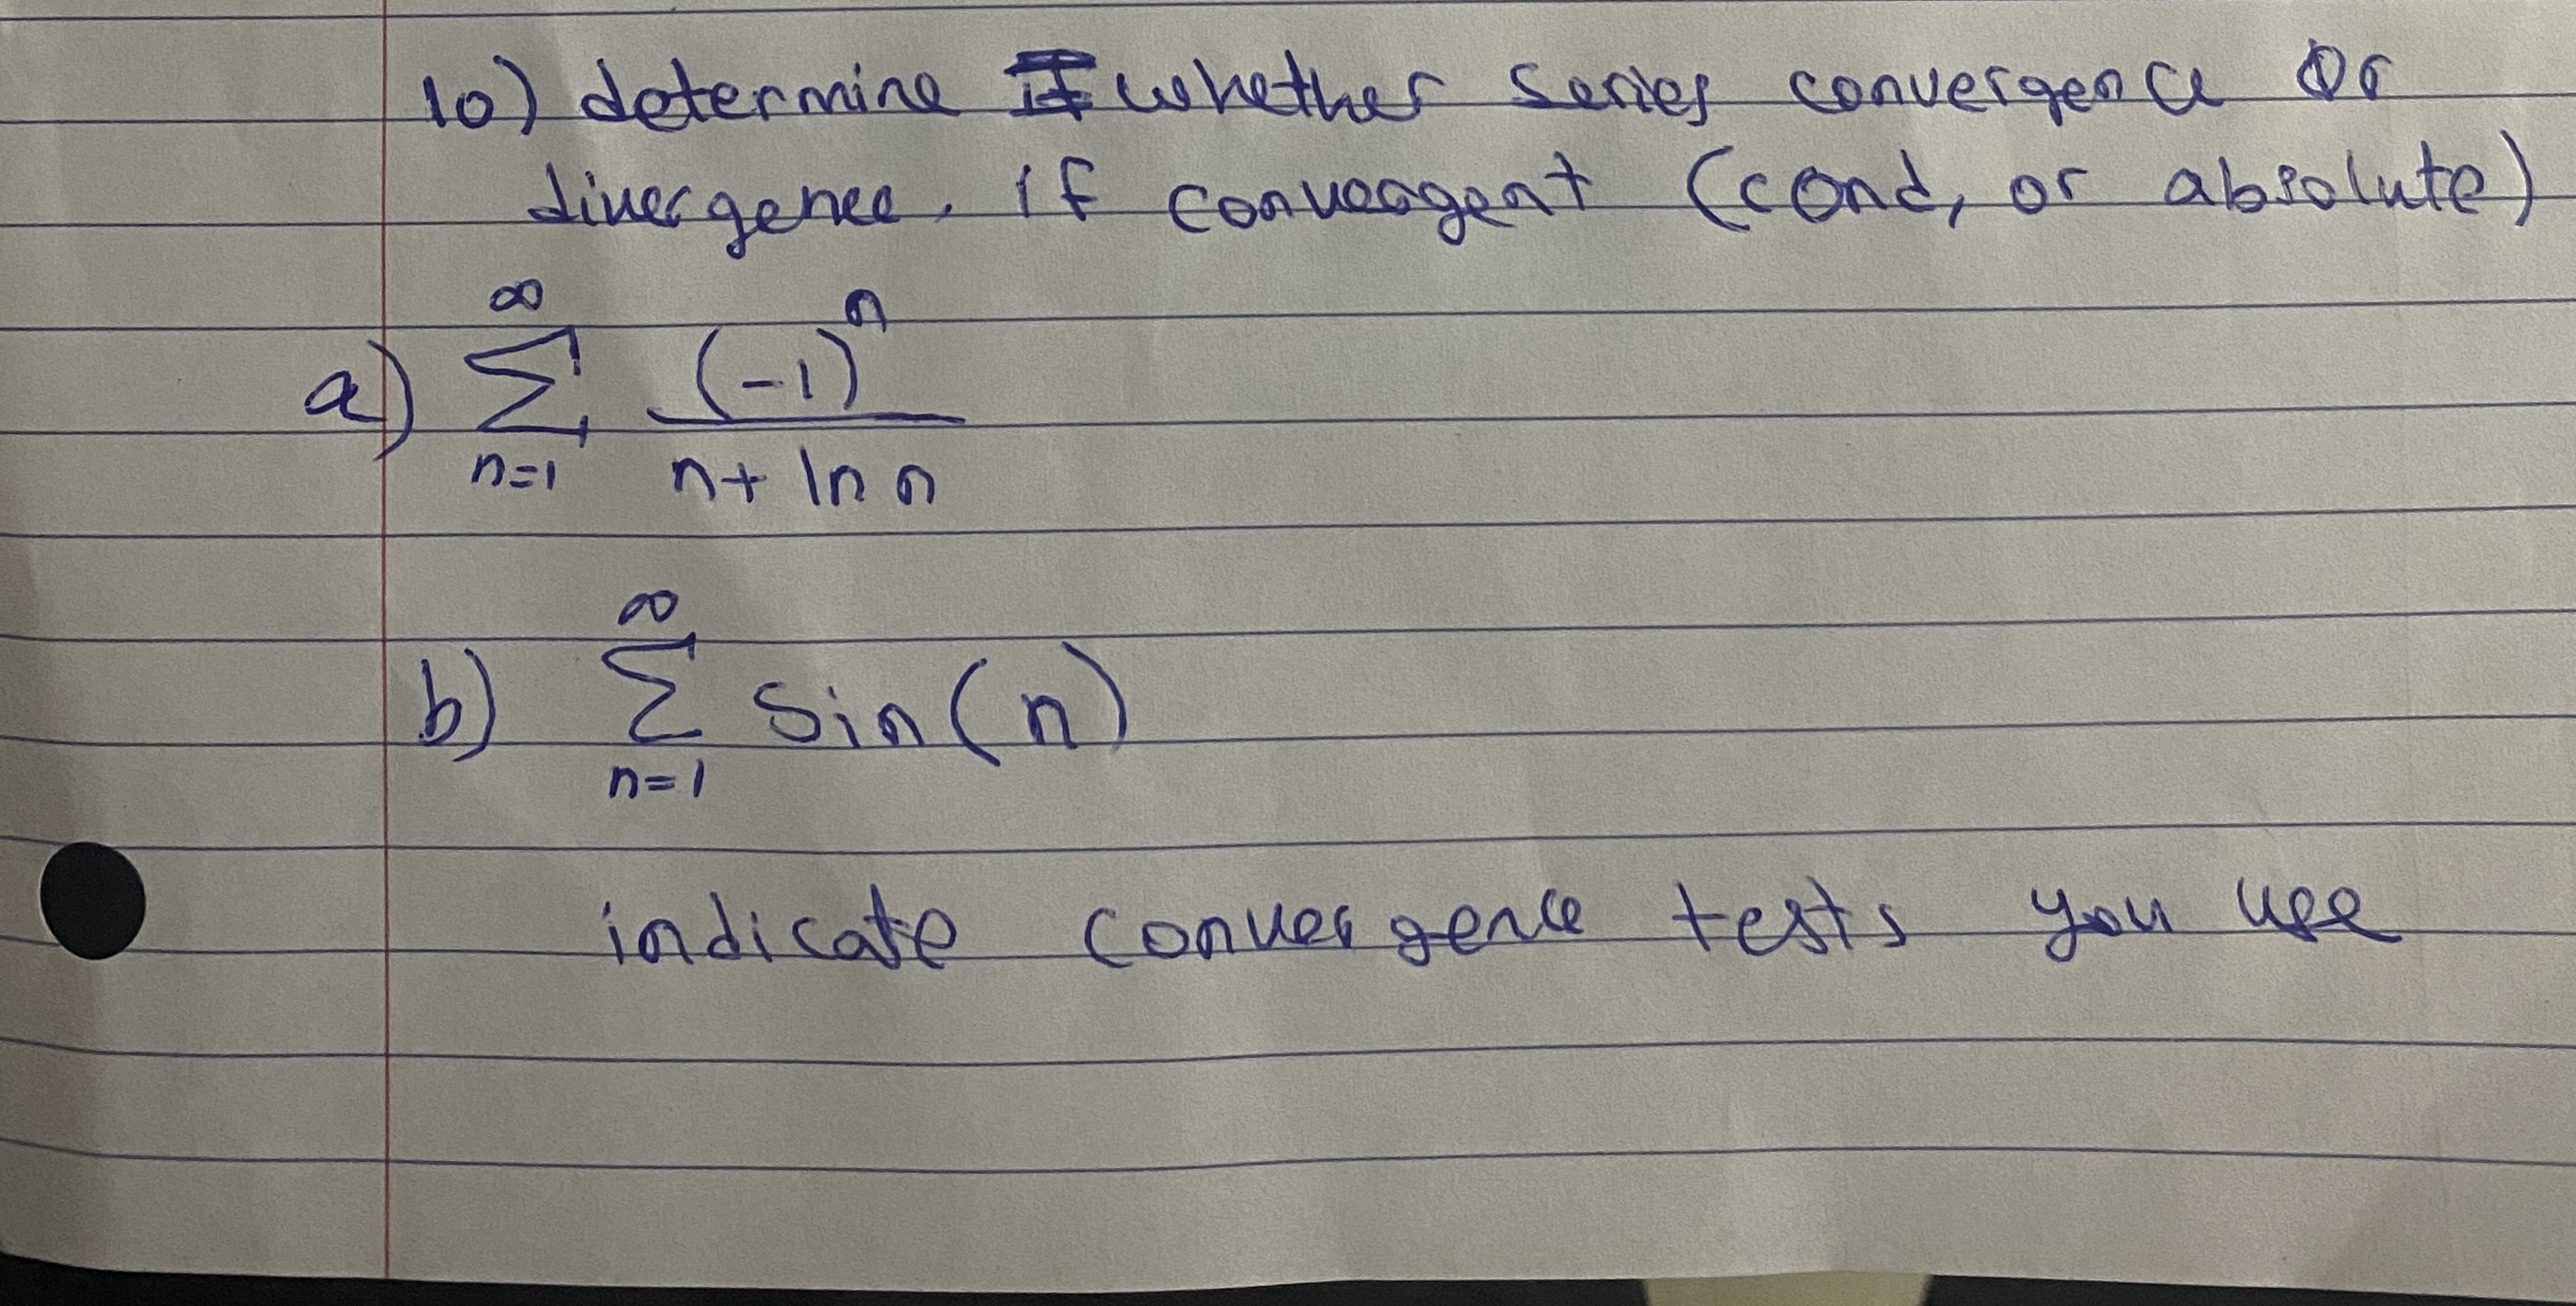 10) determine whether series convergence or
divergence. If convergent (cond, or absolute)
a) ∞ Σ n=1 (-1)^n / n + ln n
b) ∞ Σ n=1 sin(n)
indicate convergence tests you use